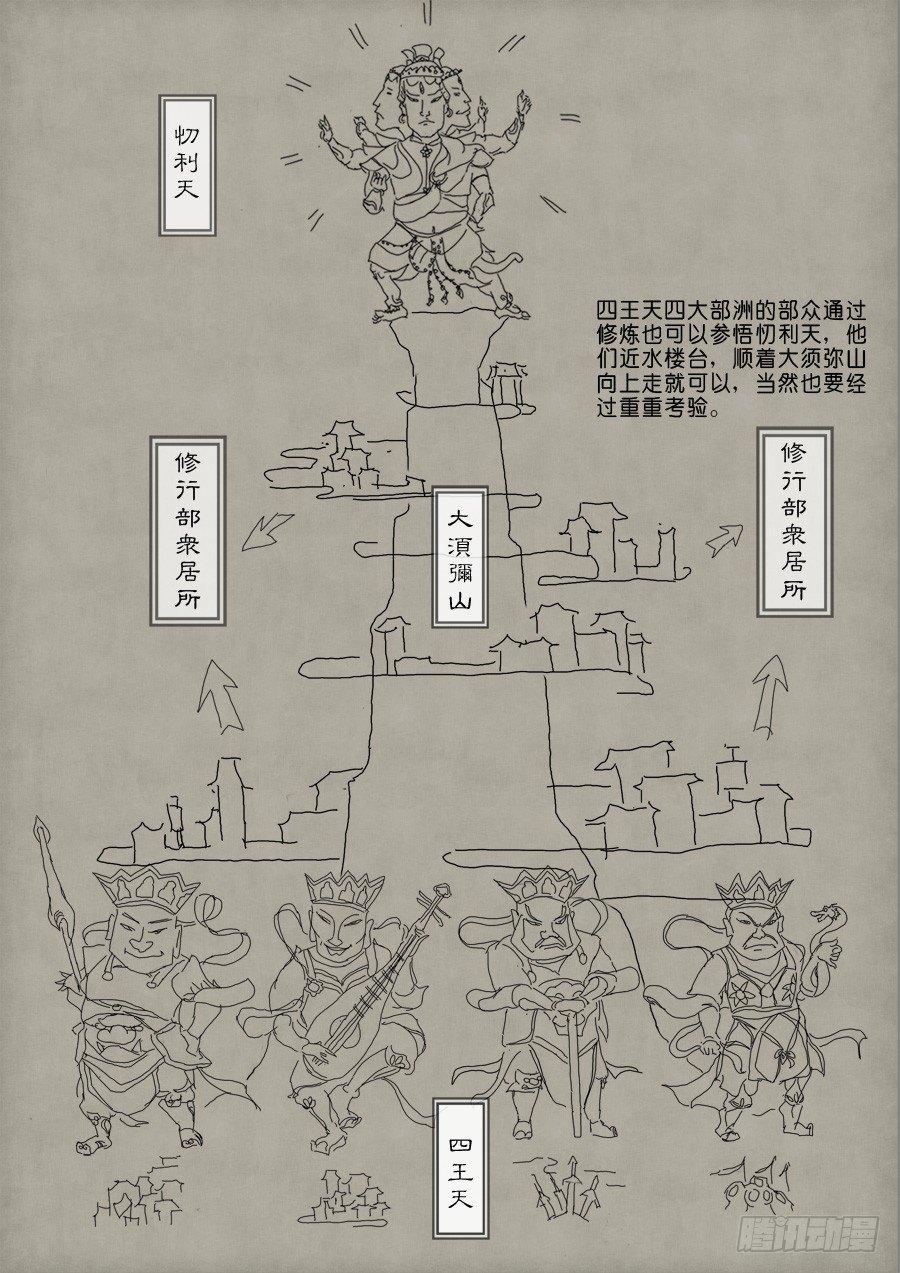 忉利天
四王天四大部洲的部众通过
修炼也可以参悟忉利天，他
们近水楼台，顺着大须弥山
向上走就可以，当然也要经
过重重考验。
修行部衆居所
大須彌山
修行部衆居所
四王天
腾讯动漫